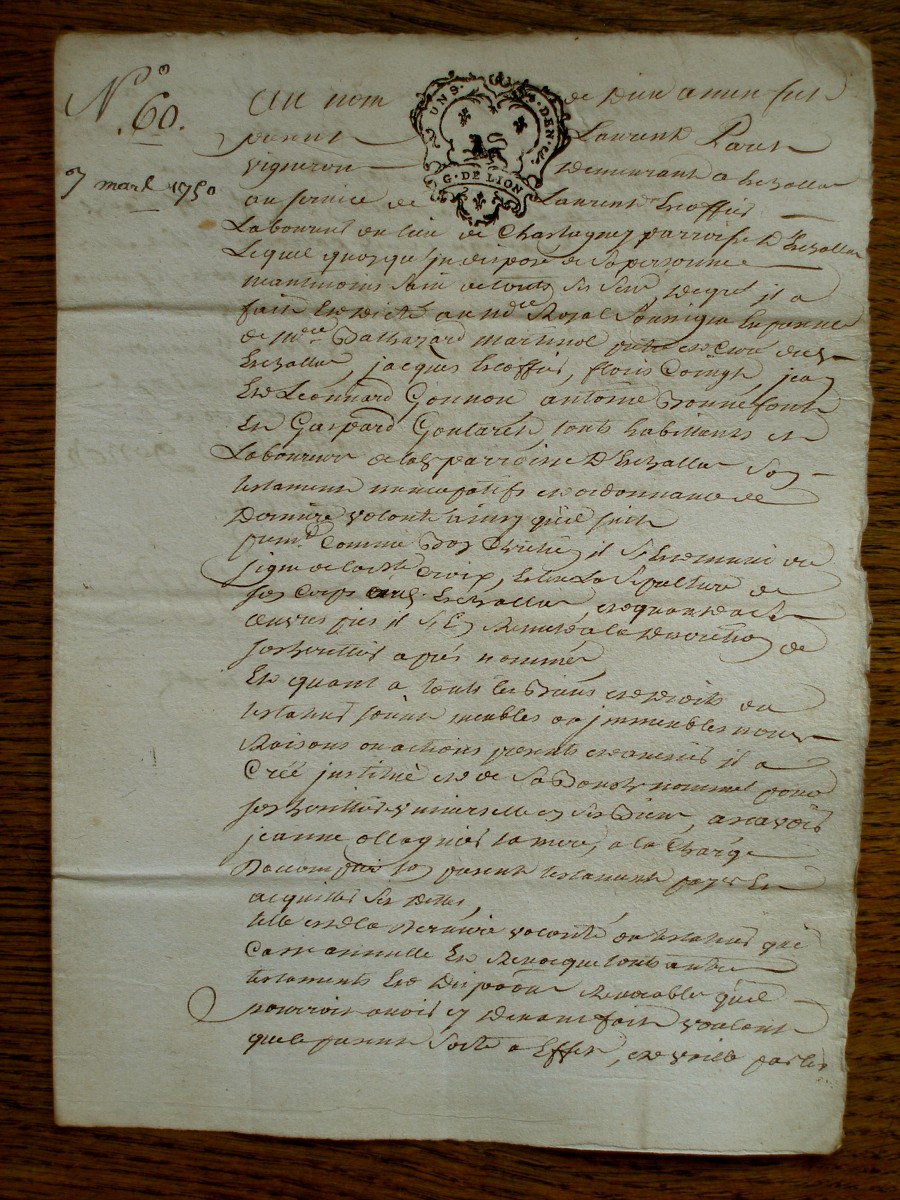 N.° 60.
7 mars 1750
UN S. DEN.
G. DE LION
Au nom de Dieu amen fut
present Laurent Paret
vigneron demeurant a Eschallas
au service de Laurent Escoffier
Laboureur du lieu de Chastagney parroisse D'Eschallas
Lequel quoyqu'jndisposé de sa personne
neantmoins sain de touts ses sens De gré il a
fait et dicté au nore Royal soussigné En presence
de mre Balthazard martinol pretre et Curé
Eschallas, jacques Escoffier, jean
Et Léonnard Gonnon antoine Bonnefont
Et Gaspard Goutaret touts habittants et
Laboureurs de la parroisse D'Eschallas son
testament nuncupatif et ordonnance de
Derniere volonté ainsy qu'il suit
premt Comme bon Chretien il s'Est muni du
signe de la ste Croix, Eslit La sepulture de
son Corps Eschallas, et quant a
œuvres pies il s'En Remet a la Discretion de
son heritiere aprés nommée
Et quant a touts les Biens et Droits du
testateur soient meubles ou jmmeubles noms
Raisons ou actions presents et avenir il a
Créé jnstitué et de sa Bouche nommé pour
son heritiere universelle en ses Biens, a scavoir
jeanne ollagnier sa mere, a la Charge
Daccomplir son present testament payer Et
acquitter ses Dettes,
telle est la Derniere volonté du testateur qui
Casse annulle Et Revocque touts autres
testaments Et Dispoons Revocables qu'il
pourroit avoir cy Devant fait voulant
que le present sorte a Effet, et vaille par